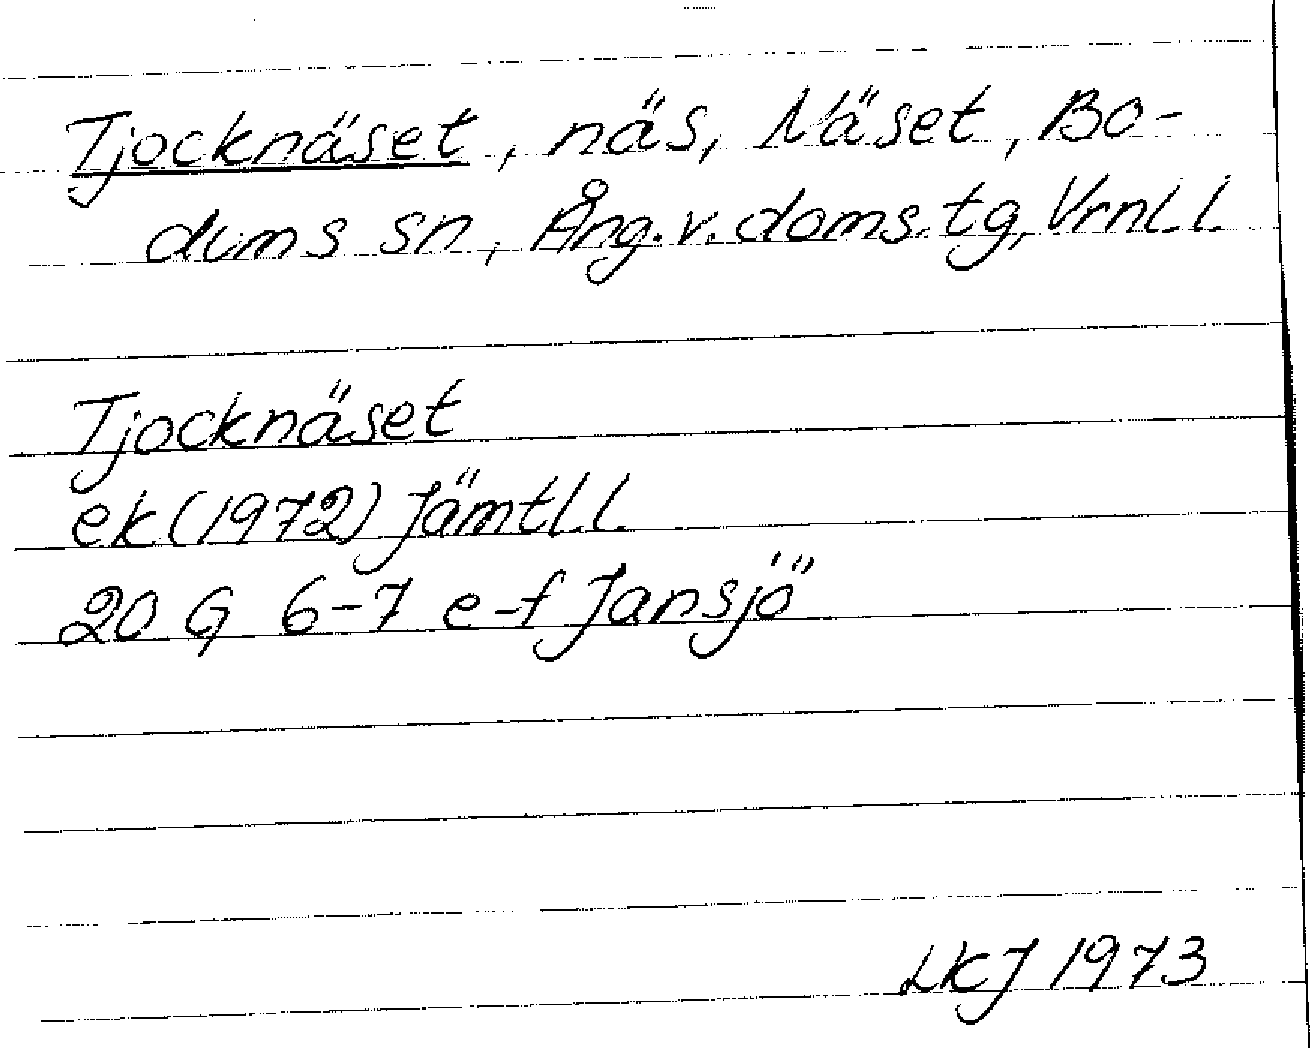 Tjocknäset, näs, Näset, Bo-
dums sn, Ång.v.doms.tg, Vrnl.l.
Tjocknäset
ek (1972) Jämtl.l.
20 G 6-7 e-f Jansjö
LKJ 1973